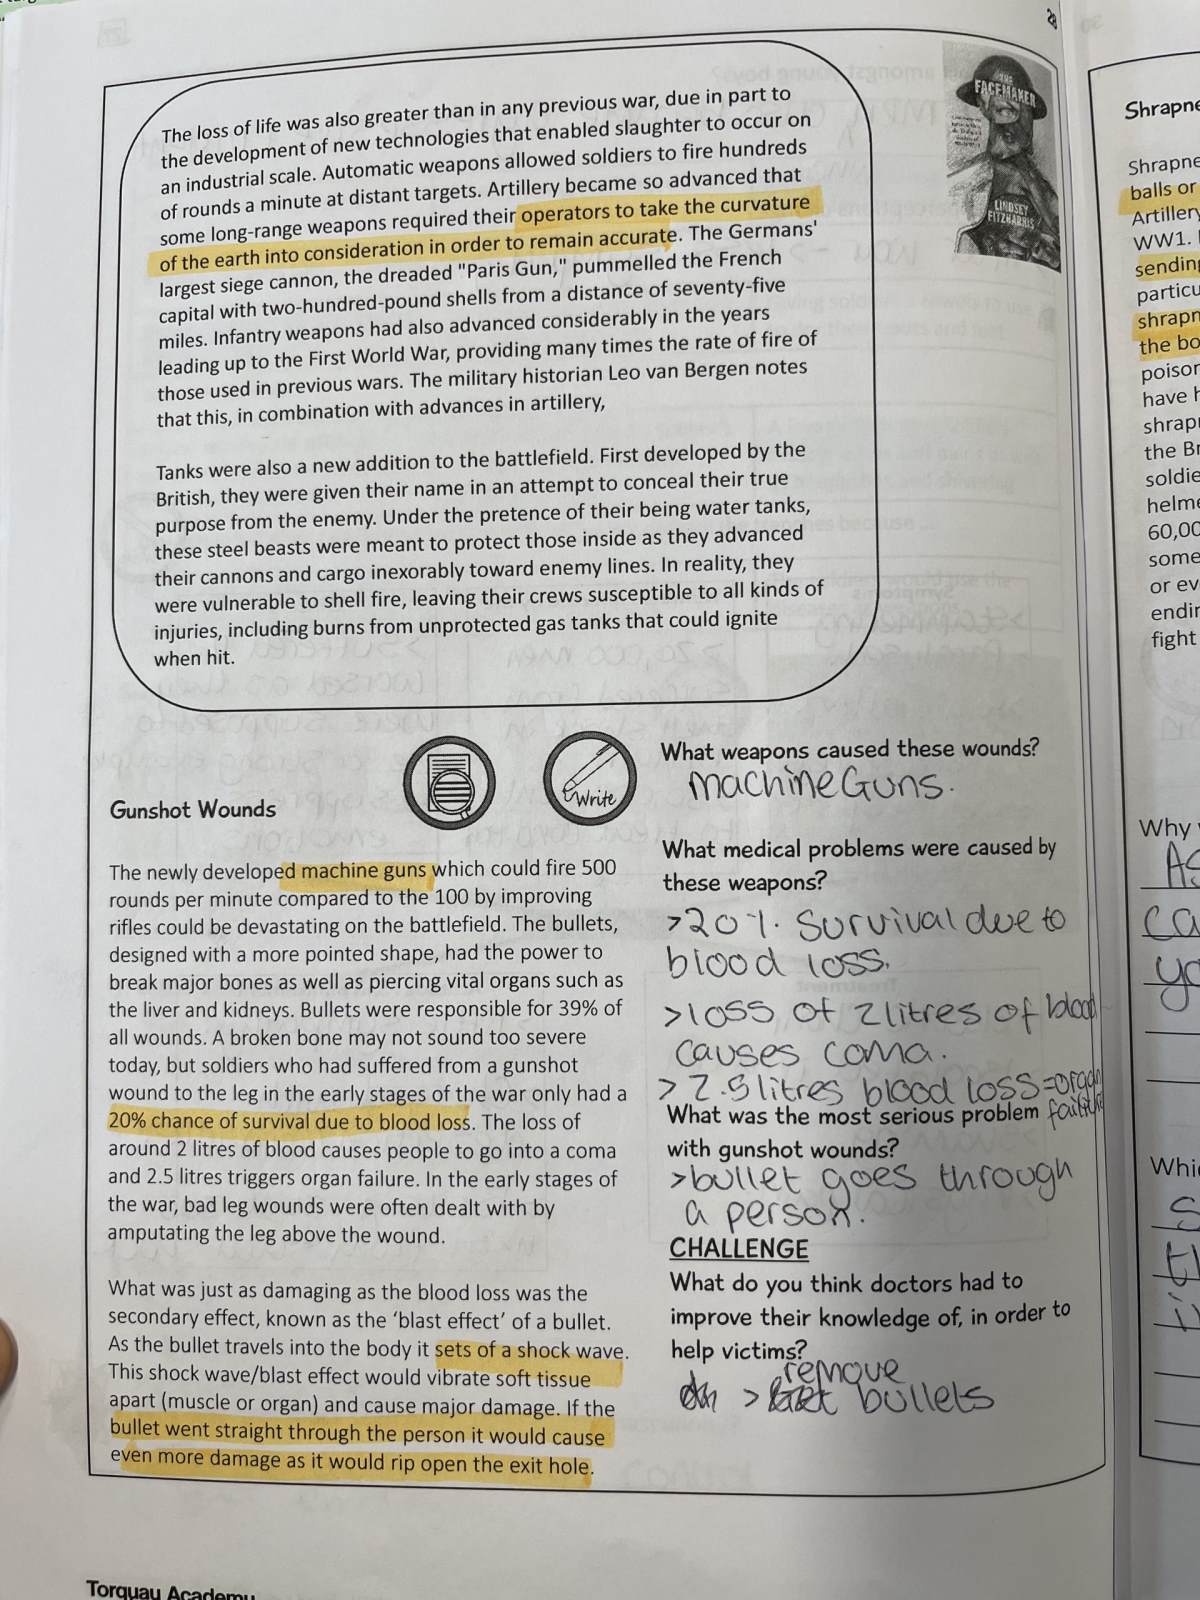 28
The loss of life was also greater than in any previous war, due in part to
the development of new technologies that enabled slaughter to occur on
an industrial scale. Automatic weapons allowed soldiers to fire hundreds
of rounds a minute at distant targets. Artillery became so advanced that
some long-range weapons required their operators to take the curvature
of the earth into consideration in order to remain accurate. The Germans'
largest siege cannon, the dreaded "Paris Gun," pummelled the French
capital with two-hundred-pound shells from a distance of seventy-five
miles. Infantry weapons had also advanced considerably in the years
leading up to the First World War, providing many times the rate of fire of
those used in previous wars. The military historian Leo van Bergen notes
that this, in combination with advances in artillery,
Tanks were also a new addition to the battlefield. First developed by the
British, they were given their name in an attempt to conceal their true
purpose from the enemy. Under the pretence of their being water tanks,
these steel beasts were meant to protect those inside as they advanced
their cannons and cargo inexorably toward enemy lines. In reality, they
were vulnerable to shell fire, leaving their crews susceptible to all kinds of
injuries, including burns from unprotected gas tanks that could ignite
when hit.
THE
FACEMAKER
LINDSEY
FITZHARRIS
Gunshot Wounds
Write
The newly developed machine guns which could fire 500
rounds per minute compared to the 100 by improving
rifles could be devastating on the battlefield. The bullets,
designed with a more pointed shape, had the power to
break major bones as well as piercing vital organs such as
the liver and kidneys. Bullets were responsible for 39% of
all wounds. A broken bone may not sound too severe
today, but soldiers who had suffered from a gunshot
wound to the leg in the early stages of the war only had a
20% chance of survival due to blood loss. The loss of
around 2 litres of blood causes people to go into a coma
and 2.5 litres triggers organ failure. In the early stages of
the war, bad leg wounds were often dealt with by
amputating the leg above the wound.
What was just as damaging as the blood loss was the
secondary effect, known as the ‘blast effect’ of a bullet.
As the bullet travels into the body it sets of a shock wave.
This shock wave/blast effect would vibrate soft tissue
apart (muscle or organ) and cause major damage. If the
bullet went straight through the person it would cause
even more damage as it would rip open the exit hole.
What weapons caused these wounds?
machine Guns.
What medical problems were caused by
these weapons?
>20%. Survival due to
blood loss.
>loss of 2litres of blood
causes coma.
> 2.5litres blood loss=organ
failure
What was the most serious problem
with gunshot wounds?
>bullet goes through
a person.
CHALLENGE
What do you think doctors had to
improve their knowledge of, in order to
help victims?
remove
> bullets
Torquay Academy
Shrapne
Shrapne
balls or
Artillery
WW1.
sending
particu
shrapn
the bo
poison
have h
shrap
the Br
soldie
helme
60,00
some
or ev
endin
fight
Why
As
ca
yo
Whi
s